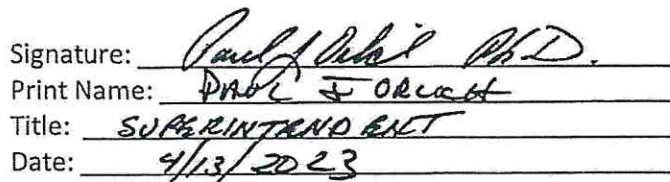 Signature: Paul J Ph.D.
Print Name: PAUL J
Title: SUPERINTENDENT
Date: 4/13/2023